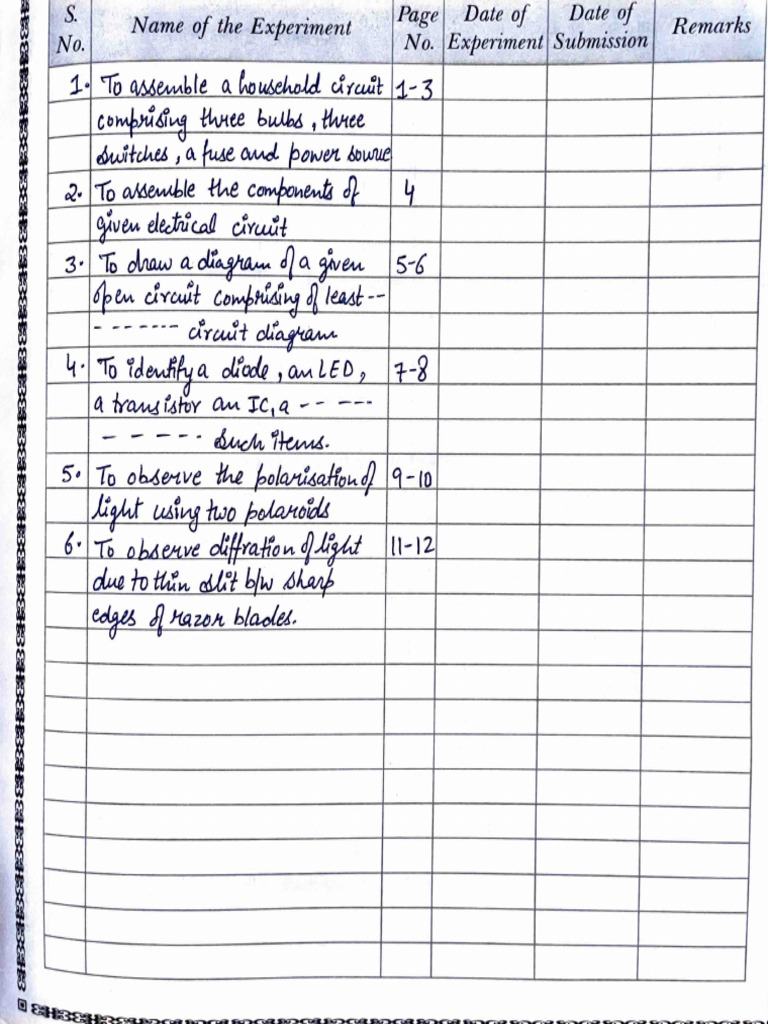 S. No. Name of the Experiment Page No. Date of Experiment Date of Submission Remarks
1. To assemble a household circuit 1-3
comprising three bulbs, three
switches, a fuse and power source
2. To assemble the components of 4
given electrical circuit
3. To draw a diagram of a given 5-6
open circuit comprising of least --
------- circuit diagram
4. To identify a diode, an LED, 7-8
a transistor an IC, a -- ----
- - - - - such items.
5. To observe the polarisation of 9-10
light using two polaroids
6. To observe diffration of light 11-12
due to thin slit b/w sharp
edges of razor blades.